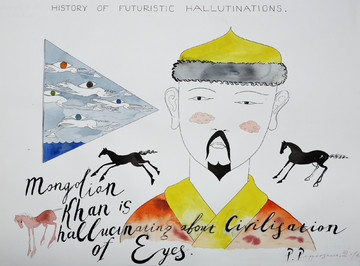 HISTORY OF FUTURISTIC HALLUTINATIONS.
Mongolian
Khan is
hallucinating about Civilization
of Eyes.
P. P